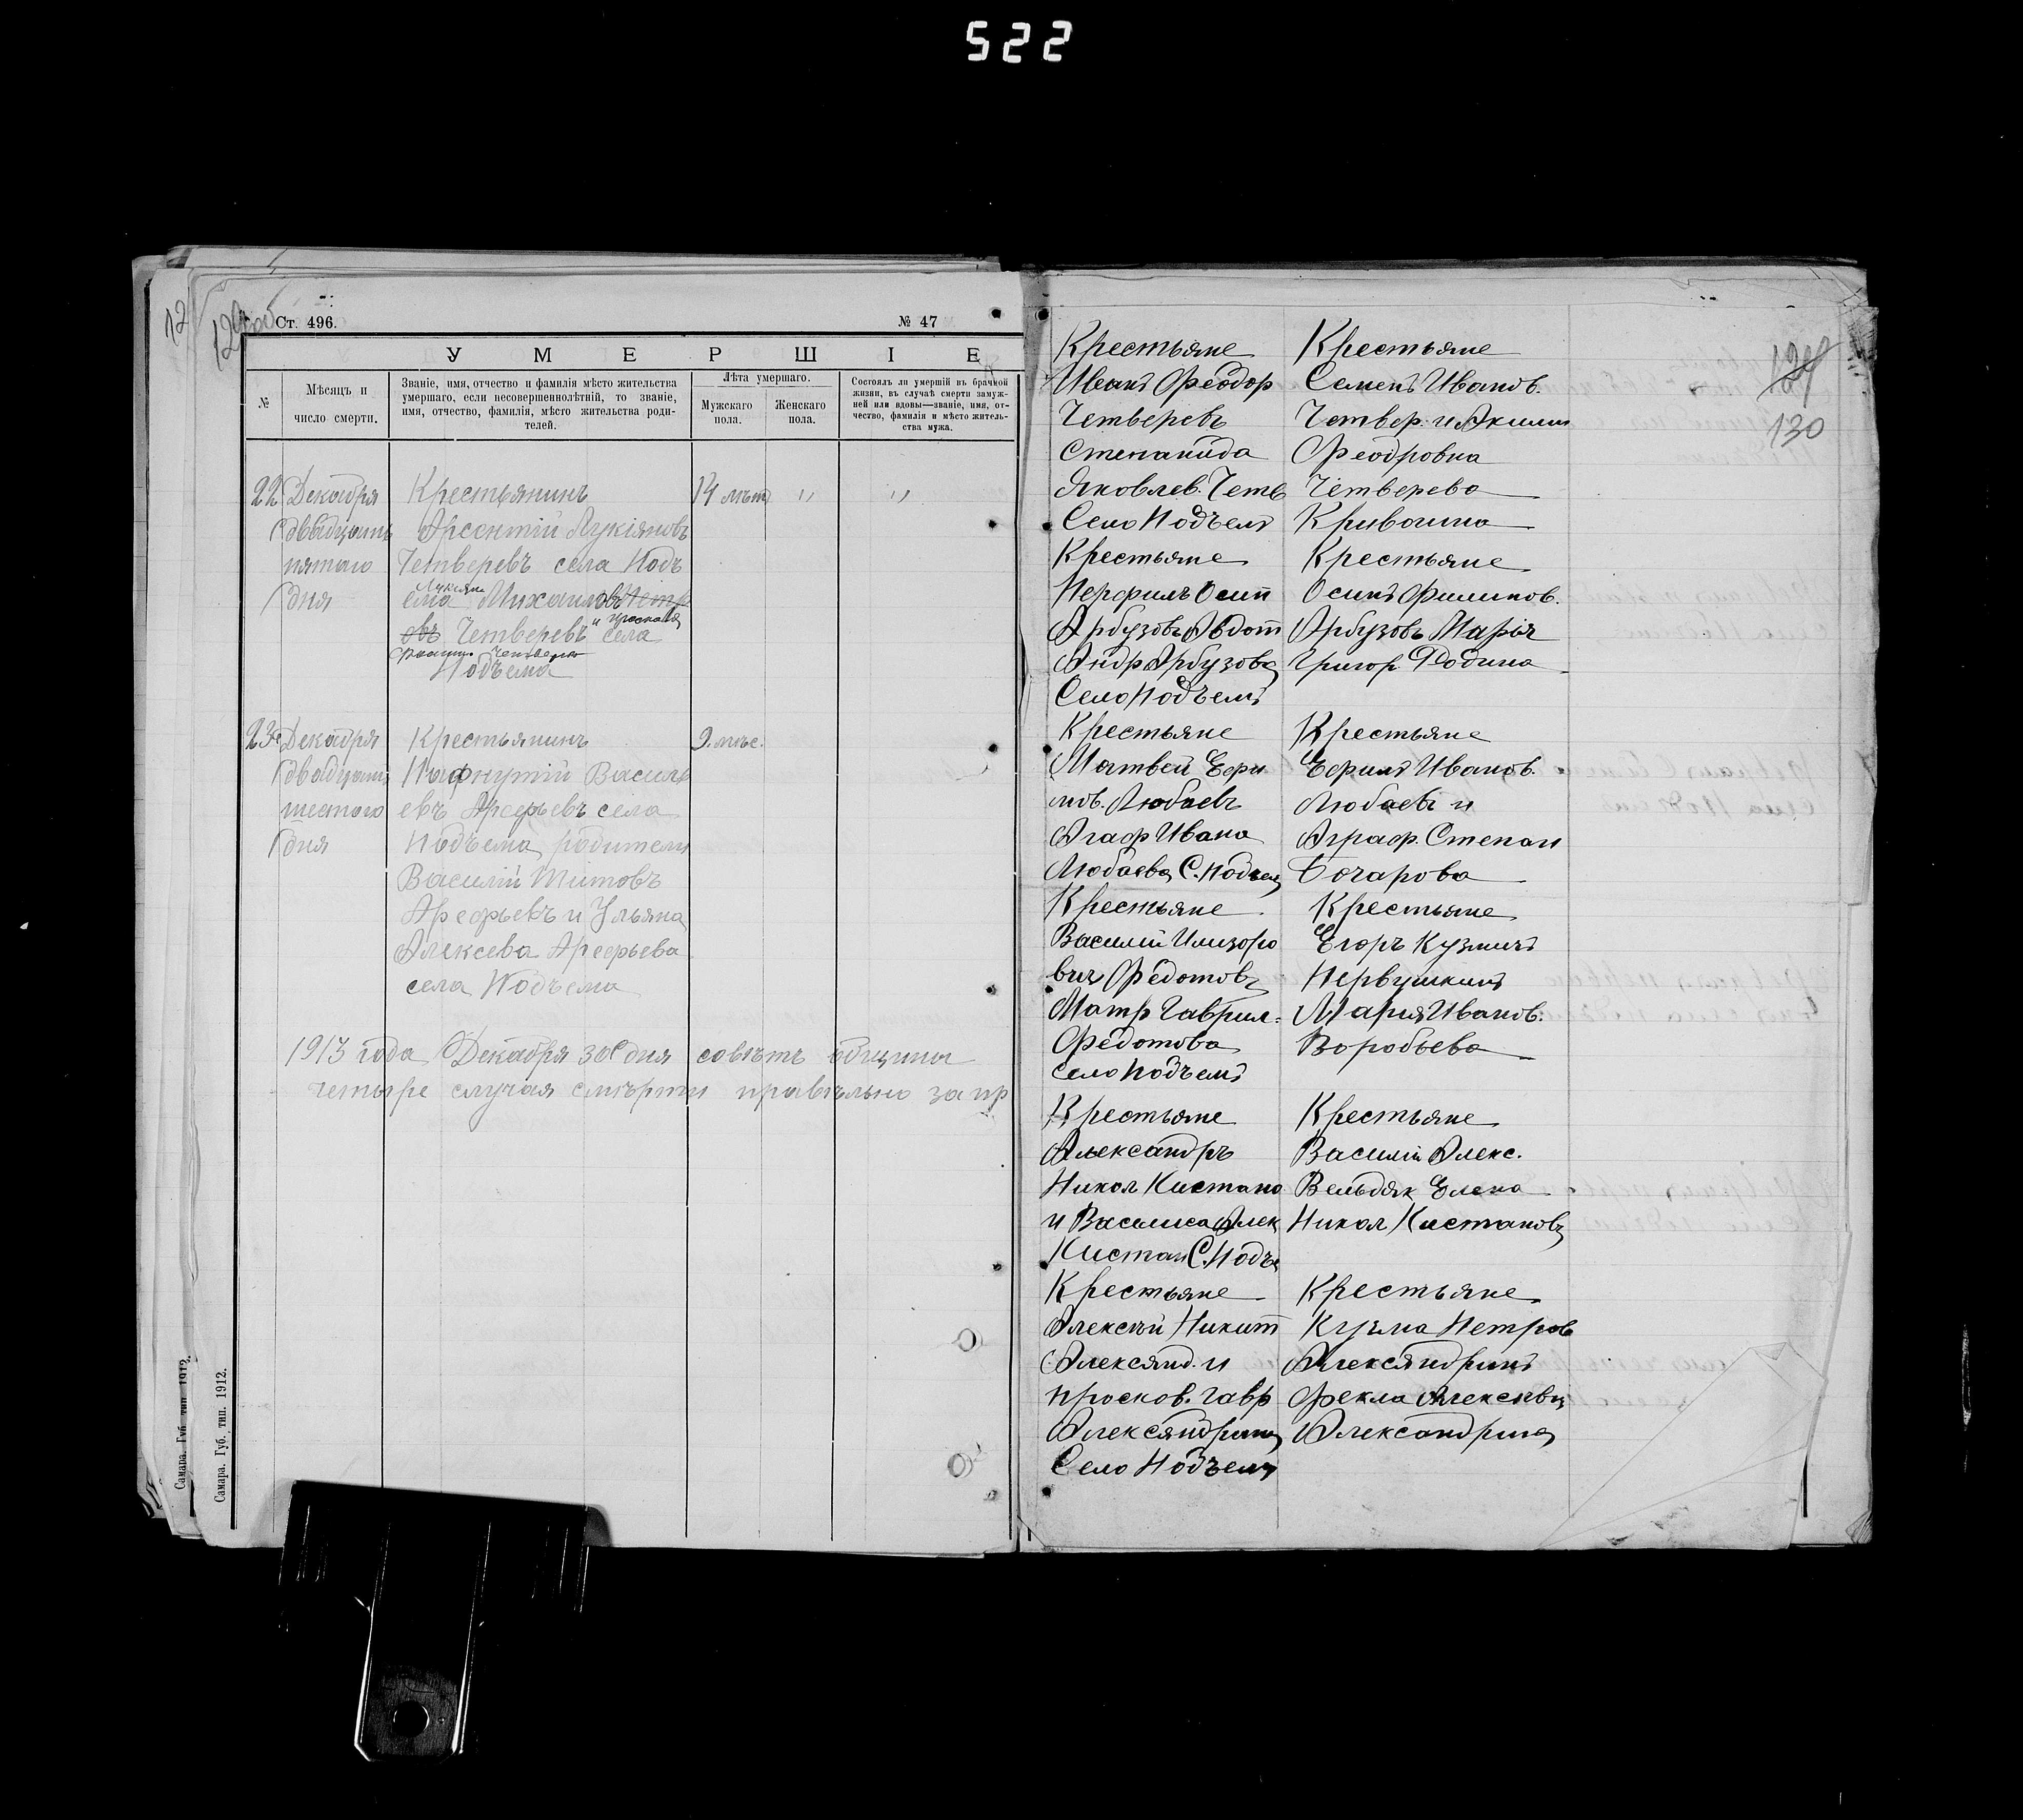 522
12
129 об
Ст. 496.
№ 47
У М Е Р Ш І Е
№
Мѣсяцъ и
число смерти.
Званіе, имя, отчество и фамилія мѣсто жительства
умершаго, если несовершеннолѣтній, то званіе,
имя, отчество, фамилія, мѣсто жительства роди-
телей.
Лѣта умершаго.
Мужскаго
пола.
Женскаго
пола.
Состоялъ ли умершій въ брачной
жизни, въ случаѣ смерти замуж-
ней или вдовы—званіе, имя, от-
чество, фамилія и мѣсто житель-
ства мужа.
22 Декабря Крестьянинъ 14 лѣтъ " "
двадцать Арсентій Лукіяновъ
пятаго Четверевъ села Подъ
Лукіян
дня ема Михаиловъ Петр
и Проскова
овъ Четверевъ села
Четверева
Подъема
23 Декабря Крестьянинъ 9. мѣс.
двадцать Пафнутій Василь
шестого евъ Арефьевъ села
дня Подъема родители
Василій Титовъ
Арефьевъ и Ульяна
Алексева Арефьева
села Подъема
1913 года Декабря 30 дня совѣтъ общины
четыре случая смѣрти правѣльно запр
Самара. Губ. тип. 1912.
Самара. Губ. тип. 1912.
129
130
Крестьяне
Иванъ Феодор
Четверевъ
Степанида
Яковлев. Четв
Село Подъемъ
Крестьяне
Перфилъ Осип
Арбузовъ Авдот
Андр Арбузова
Село Подъемъ
Крестьяне
Матвей Ефи
мов. Любаевъ
Агаф Ивана
Любаева С. Подъем
Крестьяне
Василій
вич Федотовъ
Матр Гаврил.
Федотова
село Подъемъ
Крестьяне
Александръ
Никол Кистано
и Василиса Алек
Кистан С. Подъе
Крестьяне
Алексѣй Никит
Алексянд. и
Просков. Гавр
Алексяндрина
Село Подъемъ
Крестьяне
Семенъ Иванов.
Четвер. и Акилин
Феодровна
Четверева
Кривошина
Крестьяне
Осипъ Филипов.
Арбузовъ Марія
Григор. Родина
Крестьяне
Ефимъ Иванов.
Любаевъ и
Аграф. Степан
Бочарова
Крестьяне
Егоръ Кузмичъ
Первушкинъ
Мария Иванов.
Воробьева
Крестьяне
Василій Алекс.
Вельдяк Елена
Никол Кистановъ
Крестьяне
Кузма Петров
Алексяндринъ
Фекла Алексѣвна
Александрина